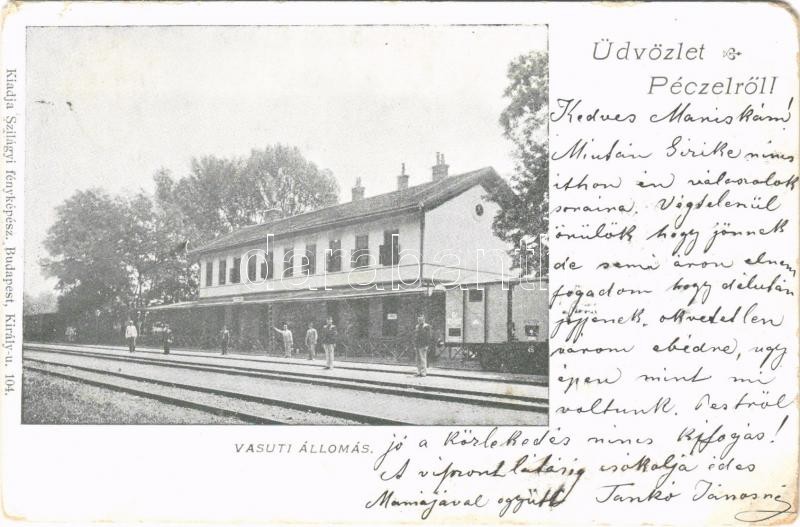 Üdvözlet
Péczelről!
Kedves Mariskám!
Miután Girike nincs
itthon én válaszolok
soraira. Végtelenül
örülök hogy jönnek
de semi áron elnem
fogadom hogy délután
jöjjenek, okvetetlen
várom ebédre, ugy
épen mint mi
voltunk. Pestről
jó a közlekedés nincs kifogás!
A viszontlátásig csókolja édes
Mamájával együtt Tankó Jánosné
VASUTI ÁLLOMÁS.
Kiadja Szilágyi fényképész, Budapest, Király-u. 104.
darabanth